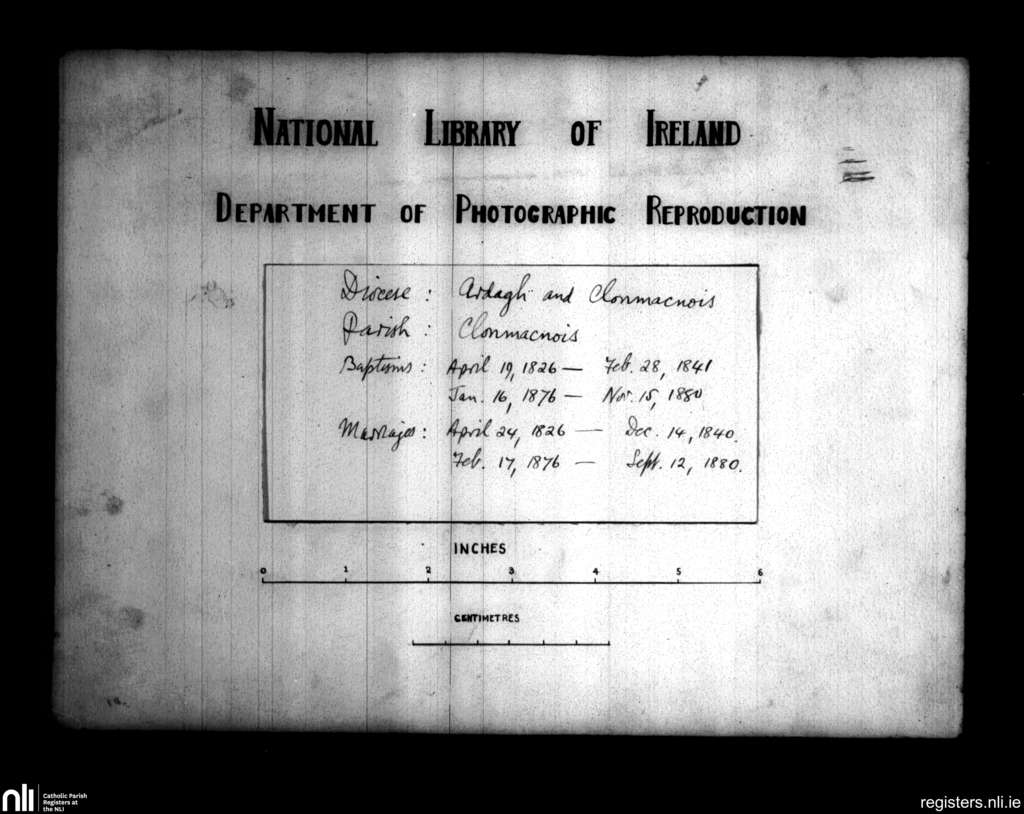 NATIONAL LIBRARY OF IRELAND
DEPARTMENT OF PHOTOGRAPHIC REPRODUCTION
Diocese : Ardagh and Clonmacnois
Parish : Clonmacnois
Baptisms : April 19, 1826 — Feb. 28, 1841
Jan. 16, 1876 — Nov. 15, 1880
Marriages : April 24, 1826 — Dec. 14, 1840.
Feb. 17, 1876 — Sept. 12, 1880.
INCHES
0 1 2 3 4 5 6
CENTIMETRES
nli Catholic Parish
Registers at
the NLI
registers.nli.ie